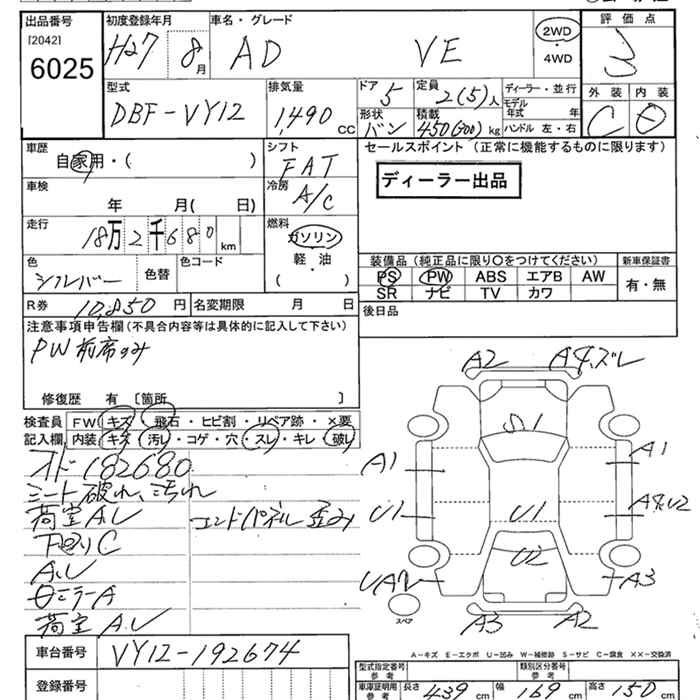 出品番号 [2042] 6025
初度登録年月 H27 8月
車名・グレード AD VE
2WD ・ 4WD
評価点 3
型式 DBF-VY12
排気量 1,490 CC
ドア 5 形状 バン
定員 2(5)人 積載 450(300)kg
ディーラー・並行
モデル年式 年
ハンドル 左・右
外装 C 内装 D
車歴 自家用・( )
シフト FAT
セールスポイント (正常に機能するものに限ります)
ディーラー出品
車検 年 月( 日)
冷房 A/C
走行 18万2千680km
燃料 ガソリン 軽・油 ・ ( )
色 シルバー 色替 色コード
装備品 (純正品に限り○をつけてください) 新車保証書
PS PW ABS エアB AW 有・無
SR ナビ TV カワ
R券 10,850円 名変期限 月 日
後日品
注意事項申告欄 (不具合内容等は具体的に記入して下さい)
PW前席のみ
修復歴 有 [箇所 ]
検査員記入欄
FW キズ・飛石・ヒビ割・リペア跡・×要
内装 キズ・汚レ・コゲ・穴・スレ・キレ・破レ
オド182680
シート破れ、汚れ
荷室A.U エンドパネル歪み
下回りC
A.U
ミラーA
荷室A.U
A2 A4.ズレ
S1
A1 A1
U1 U1 A4.U2
U2
UA2 A3
スペア
A3 A2
A-キズ E-エクボ U-凹み W-補修跡 S-サビ C-腐食 XX-交換済
車台番号 VY12-192674
登録番号
型式指定番号 参考 類別区分番号 参考
車庫証明用 参考 長さ 439cm 幅 169cm 高さ 150cm